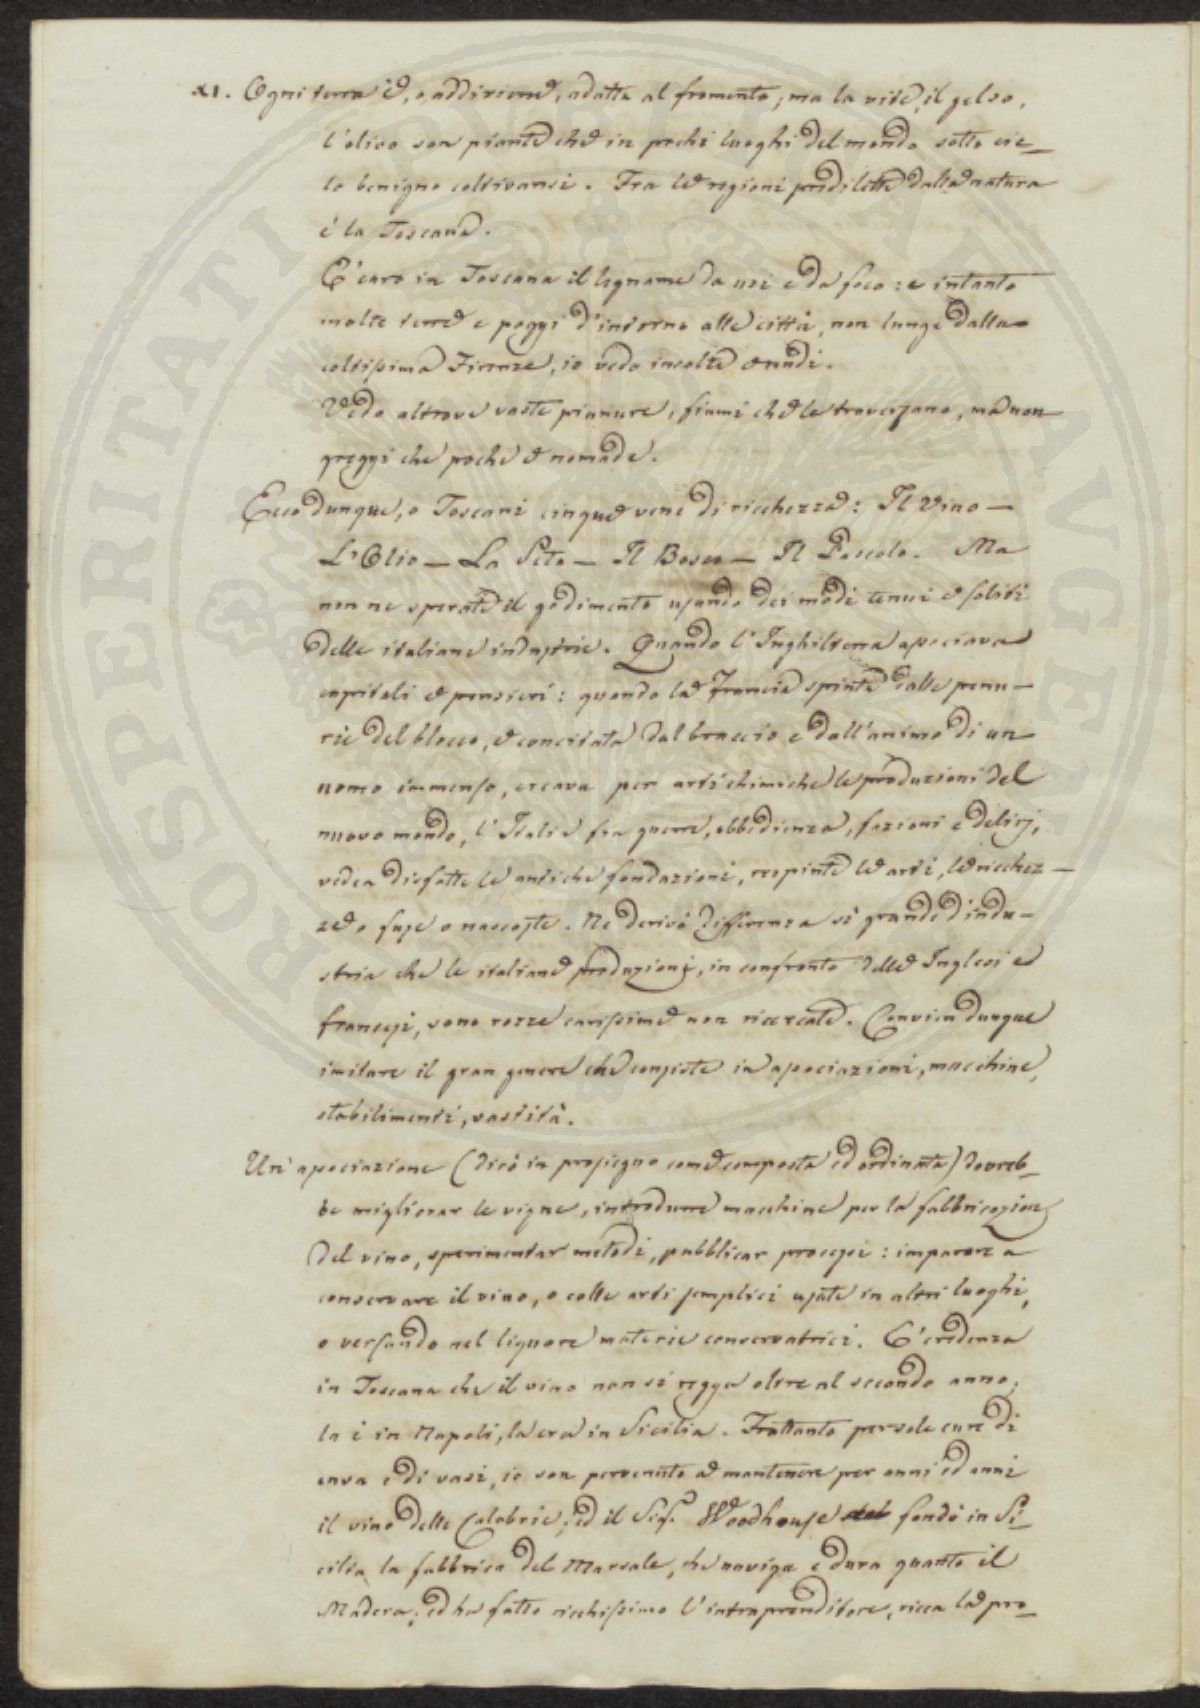 XI. Ogni terra è, o addiviene, adatta al fromento; ma la vite, il gelso,
l'olivo son piante che in pochi luoghi del mondo sotto cie-
lo benigno coltivansi. Fra le regioni predilette dalla natura
è la Toscana.
È caro in Toscana il legname da usi e da foco: e intanto
molte terre e poggi d'intorno alle città, non lunge dalla
coltissima Firenze, io vedo incolte e nudi.
Vedo altrove vaste pianure, fiumi che le traversano, ma non
greggi che poche e nomade.
Ecco dunque, o Toscani cinque vene di ricchezza: Il Vino —
L'Olio — La Seta — Il Bosco — Il Pascolo. Ma
non ne sperate il godimento usando dei modi tenui e soliti
delle italiane industrie. Quando l'Inghilterra associava
capitali e pensieri: quando la Francia spinta dalle penu-
rie del blocco, e concitata dal braccio e dall'animo di un
uomo immenso, creava per arti chimiche le produzioni del
nuovo mondo, l'Italia fra guerre, obbedienza, fazioni e delirj,
vedea disfatte le antiche fondazioni, respinte le arti, le ricchez-
ze o fuse o nascoste. Ne derivò differenza sì grande d'indu-
stria che le italiane produzioni, in confronto delle Inglesi e
francesi, sono rozze carissime non ricercate. Convien dunque
imitare il gran genere che consiste in associazioni, macchine,
stabilimenti, vastità.
Un'associazione (dirò in prosieguo come composta ed ordinata) dovreb-
be migliorar le vigne, introdurre macchine per la fabbricazione
del vino, sperimentar metodi, pubblicar processi: imparare a
conservare il vino, o colle arti semplici usate in altri luoghi,
o versando nel liquore materie conservatrici. È credenza
in Toscana che il vino non si regga oltre al secondo anno;
la è in Napoli, la era in Sicilia. Frattanto per sole cure di
cava e di vasi, io son pervenuto a mantenere per anni ed anni
il vino delle Calabrie; ed il Sig.r Woodhouse fondò in Si-
cilia la fabbrica del Marsala, che naviga e dura quanto il
Madera; ed ha fatto ricchissimo l'intraprenditore, ricca la pro-